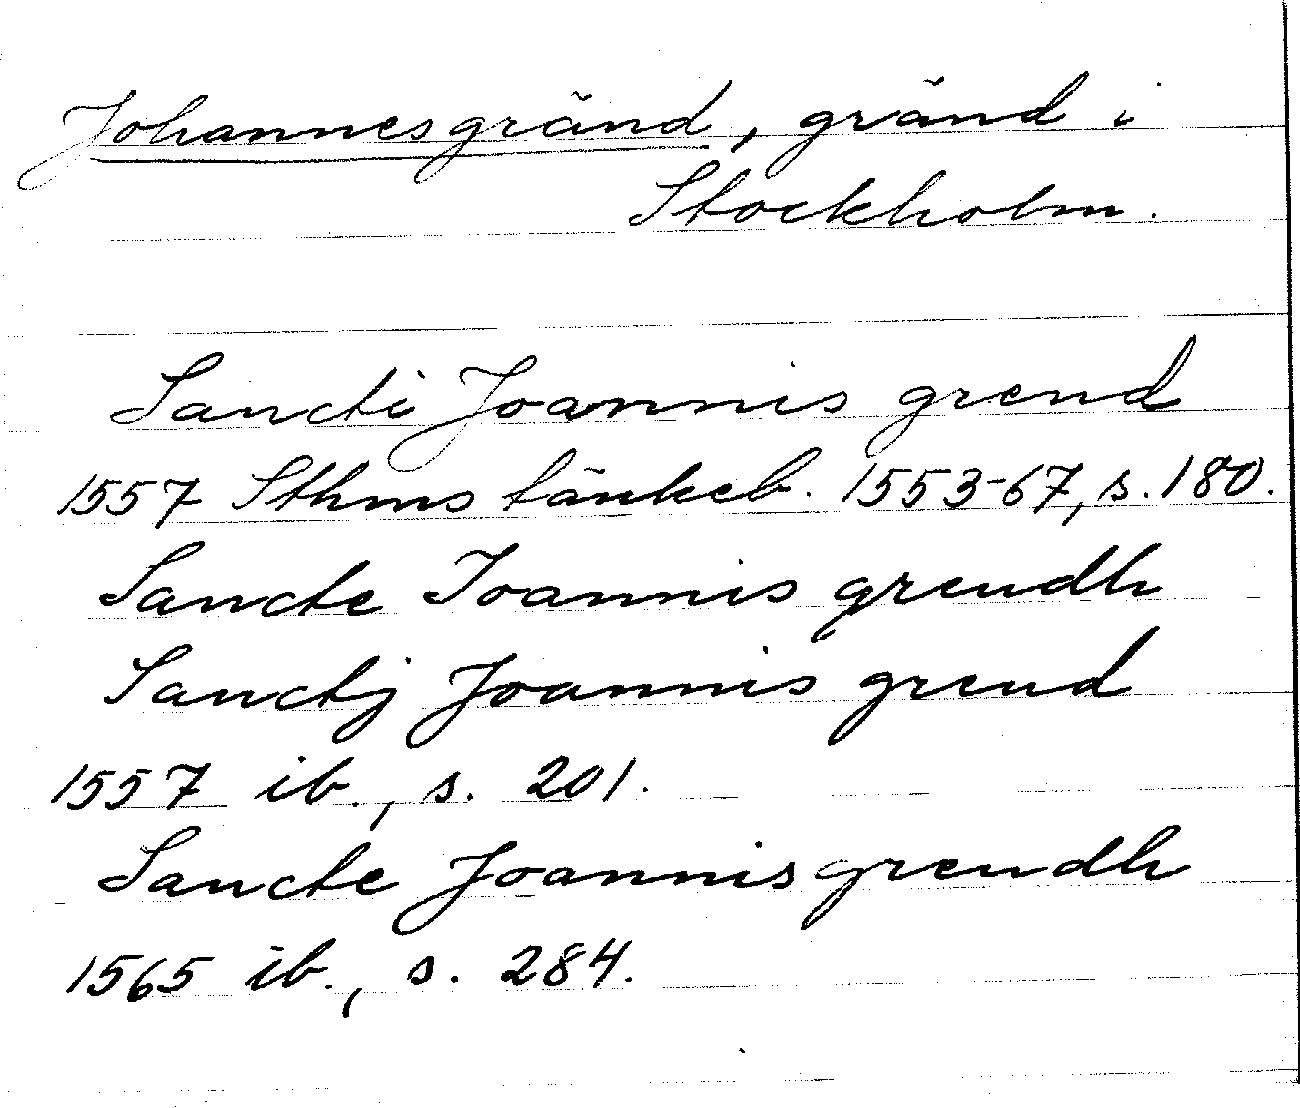 Johannesgränd, gränd i
Stockholm.
Sancti Joannis grend
1557 Sthms tänkeb. 1553-67, s. 180.
Sancte Ioannis grendh
Sanctj Joannis grend
1557 ib., s. 201.
Sancte Joannis grendh
1565 ib., s. 284.